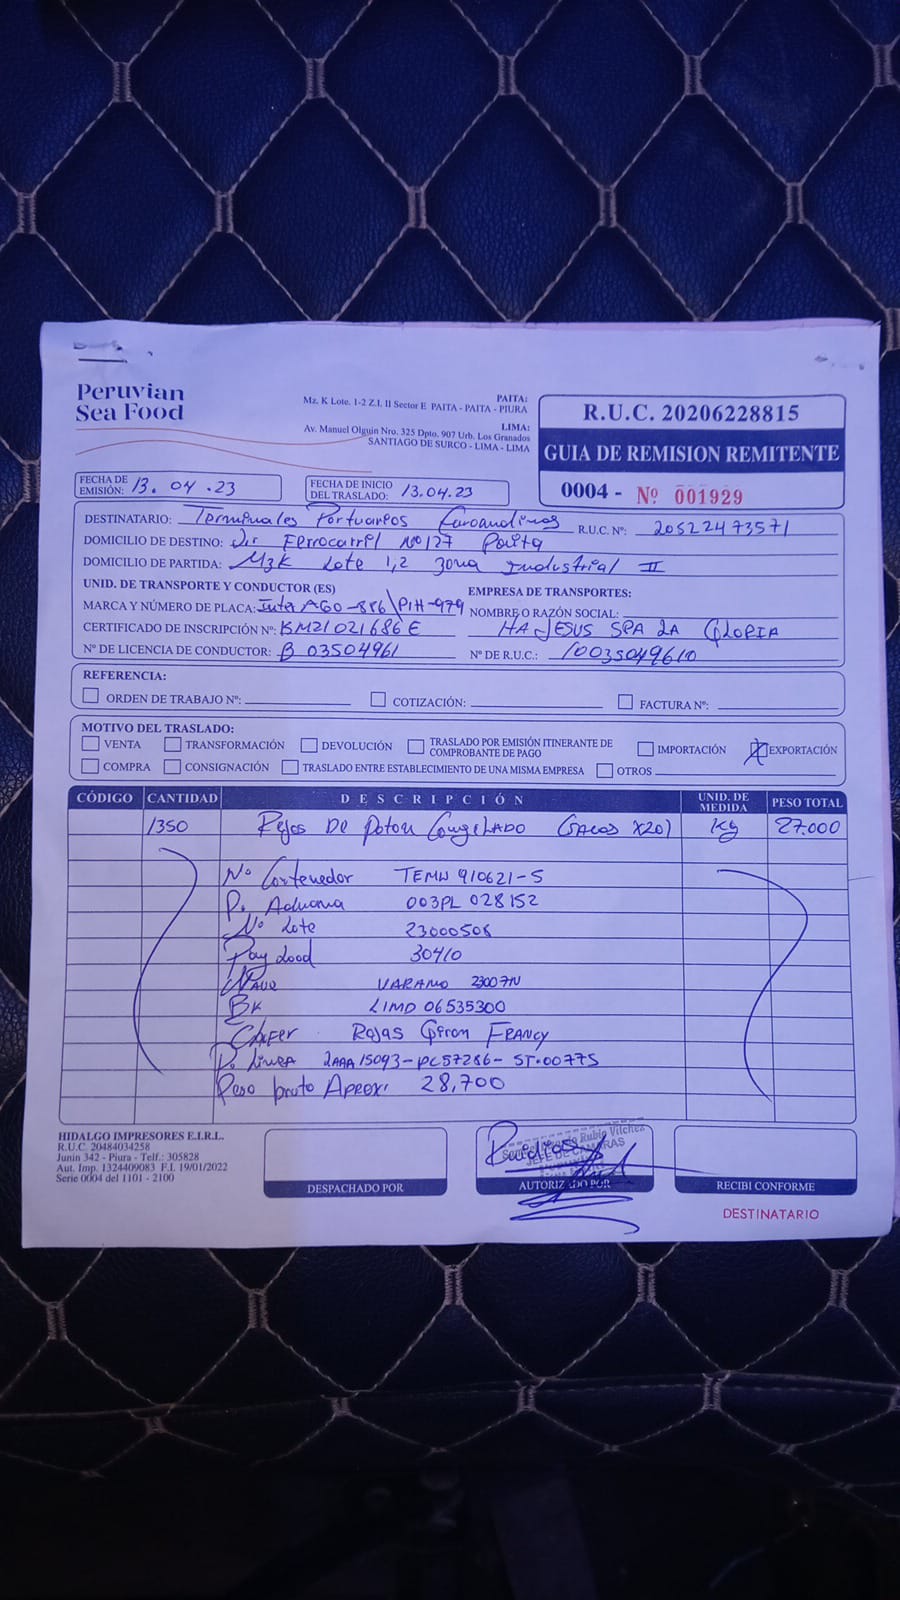 Peruvian
Sea Food
PAITA:
Mz. K Lote. 1-2 Z.I. II Sector E PAITA - PAITA - PIURA
LIMA:
Av. Manuel Olguin Nro. 325 Dpto. 907 Urb. Los Granados
SANTIAGO DE SURCO - LIMA - LIMA
R.U.C. 20206228815
GUIA DE REMISION REMITENTE
0004 - Nº 001929
FECHA DE EMISIÓN: 13.04.23
FECHA DE INICIO DEL TRASLADO: 13.04.23
DESTINATARIO: Terminales Portuarios Euroandinos R.U.C. Nº: 20522473571
DOMICILIO DE DESTINO: Jir Ferrocarril Nº 127 Paita
DOMICILIO DE PARTIDA: Mzk Lote 1,2 Zona Industrial II
UNID. DE TRANSPORTE Y CONDUCTOR (ES) EMPRESA DE TRANSPORTES:
MARCA Y NÚMERO DE PLACA: Inter AGO-886\P1H-979 NOMBRE O RAZÓN SOCIAL:
CERTIFICADO DE INSCRIPCIÓN Nº: 15M21021686E HA JESUS SEA LA GLORIA
Nº DE LICENCIA DE CONDUCTOR: B 03504961 Nº DE R.U.C.: 10035049610
REFERENCIA:
ORDEN DE TRABAJO Nº: COTIZACIÓN: FACTURA Nº:
MOTIVO DEL TRASLADO:
VENTA TRANSFORMACIÓN DEVOLUCIÓN TRASLADO POR EMISIÓN ITINERANTE DE COMPROBANTE DE PAGO IMPORTACIÓN X EXPORTACIÓN
COMPRA CONSIGNACIÓN TRASLADO ENTRE ESTABLECIMIENTO DE UNA MISMA EMPRESA OTROS
CÓDIGO CANTIDAD DESCRIPCIÓN UNID. DE MEDIDA PESO TOTAL
1350 Rejos DE Poton CongELADO (SACOS X20) Kg 27.000
Nº Contenedor TEMU 910621-5
P. Aduana 003PL 028152
Nº Lote 23000508
Pay Lood 30410
Nave VARAMO 2307N
BK LIMD 06535300
Chofer Rojas Giron FRANCY
P. Linea 2AAA15093-PC57286-ST.00775
Peso bruto Aprox: 28,700
HIDALGO IMPRESORES E.I.R.L.
R.U.C. 20484034258
Junin 342 - Piura - Telf.: 305828
Aut. Imp. 1324409083 F.I. 19/01/2022
Serie 0004 del 1101 - 2100
Rubio Vilchez
JEFE DE CAMARAS
DESPACHADO POR AUTORIZADO POR RECIBI CONFORME
DESTINATARIO